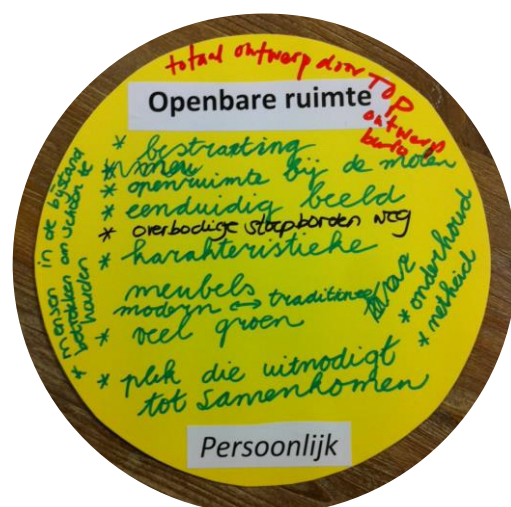 totaal ontwerp door TOP
ontwerp
buro
Openbare ruimte
* bestrating
* openruimte bij de molen
* eenduidig beeld
* overbodige stoepborden weg
* karakteristieke
meubels
modern ↔ traditioneel
* veel groen
* plek die uitnodigt
tot samenkomen
* onderhoud
* netheid
* mensen in de bijstand
betrekken om schoon te
houden
Persoonlijk